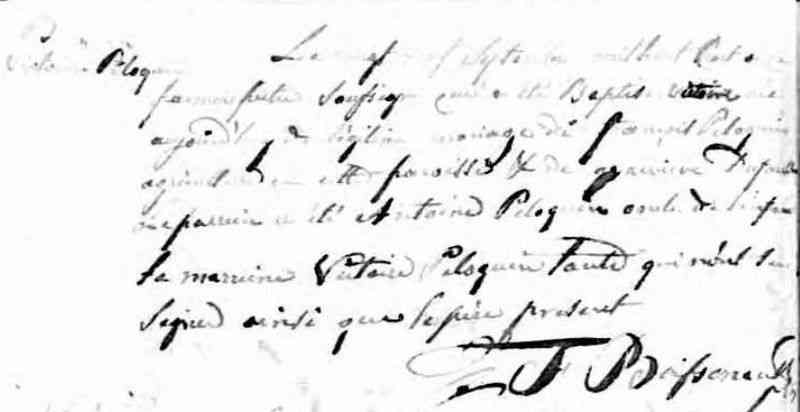 Victoire Peloquin
Le neuf Septembre mil huit cent
par moi prêtre soussigné a été Baptisé Victoire née
aujourd'hui du légitime mariage de François Peloquin
agriculteur en cette paroisse & de Genevieve
Le parrein a été Antoine Peloquin oncle de l'enfant
La marreine Victoire Peloquin Tante qui n'ont su
signer ainsi que le père present
F Boissonnault